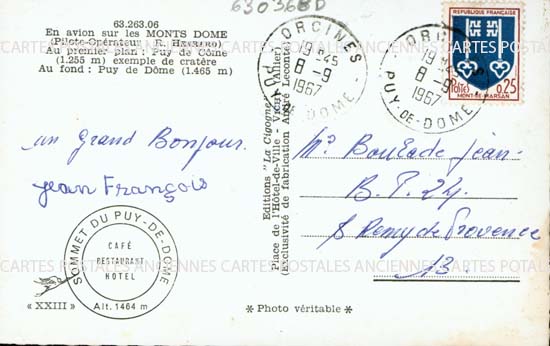 63.263.06
63036BD
En avion sur les MONTS DOME
(Pilote-Opérateur R. HENRARD)
Au premier plan : Puy de Côme
(1.255 m) exemple de cratère
Au fond : Puy de Dôme (1.465 m)
ORCINES
19-45
8-9
1967
PUY-DE-DOME
ORCINES
19-45
8-9
1967
PUY-DE-DOME
REPUBLIQUE FRANÇAISE
POSTES
0,25
MONT-DE-MARSAN
un Grand Bonjour.
jean François
Editions "La Cigogne"
Place de l'Hôtel-de-Ville - Vichy (Allier)
(Exclusivité de fabrication André Leconte)
Boulade jean-
B.P. 24.
S Remy de Provence
13.
SOMMET DU PUY-DE-DOME
CAFÉ
RESTAURANT
HOTEL
Alt. 1464 m
« XXIII »
* Photo véritable *
CARTES POSTALES ANCIENNES CARTES POSTALES ANCIENNES CARTES POSTALES